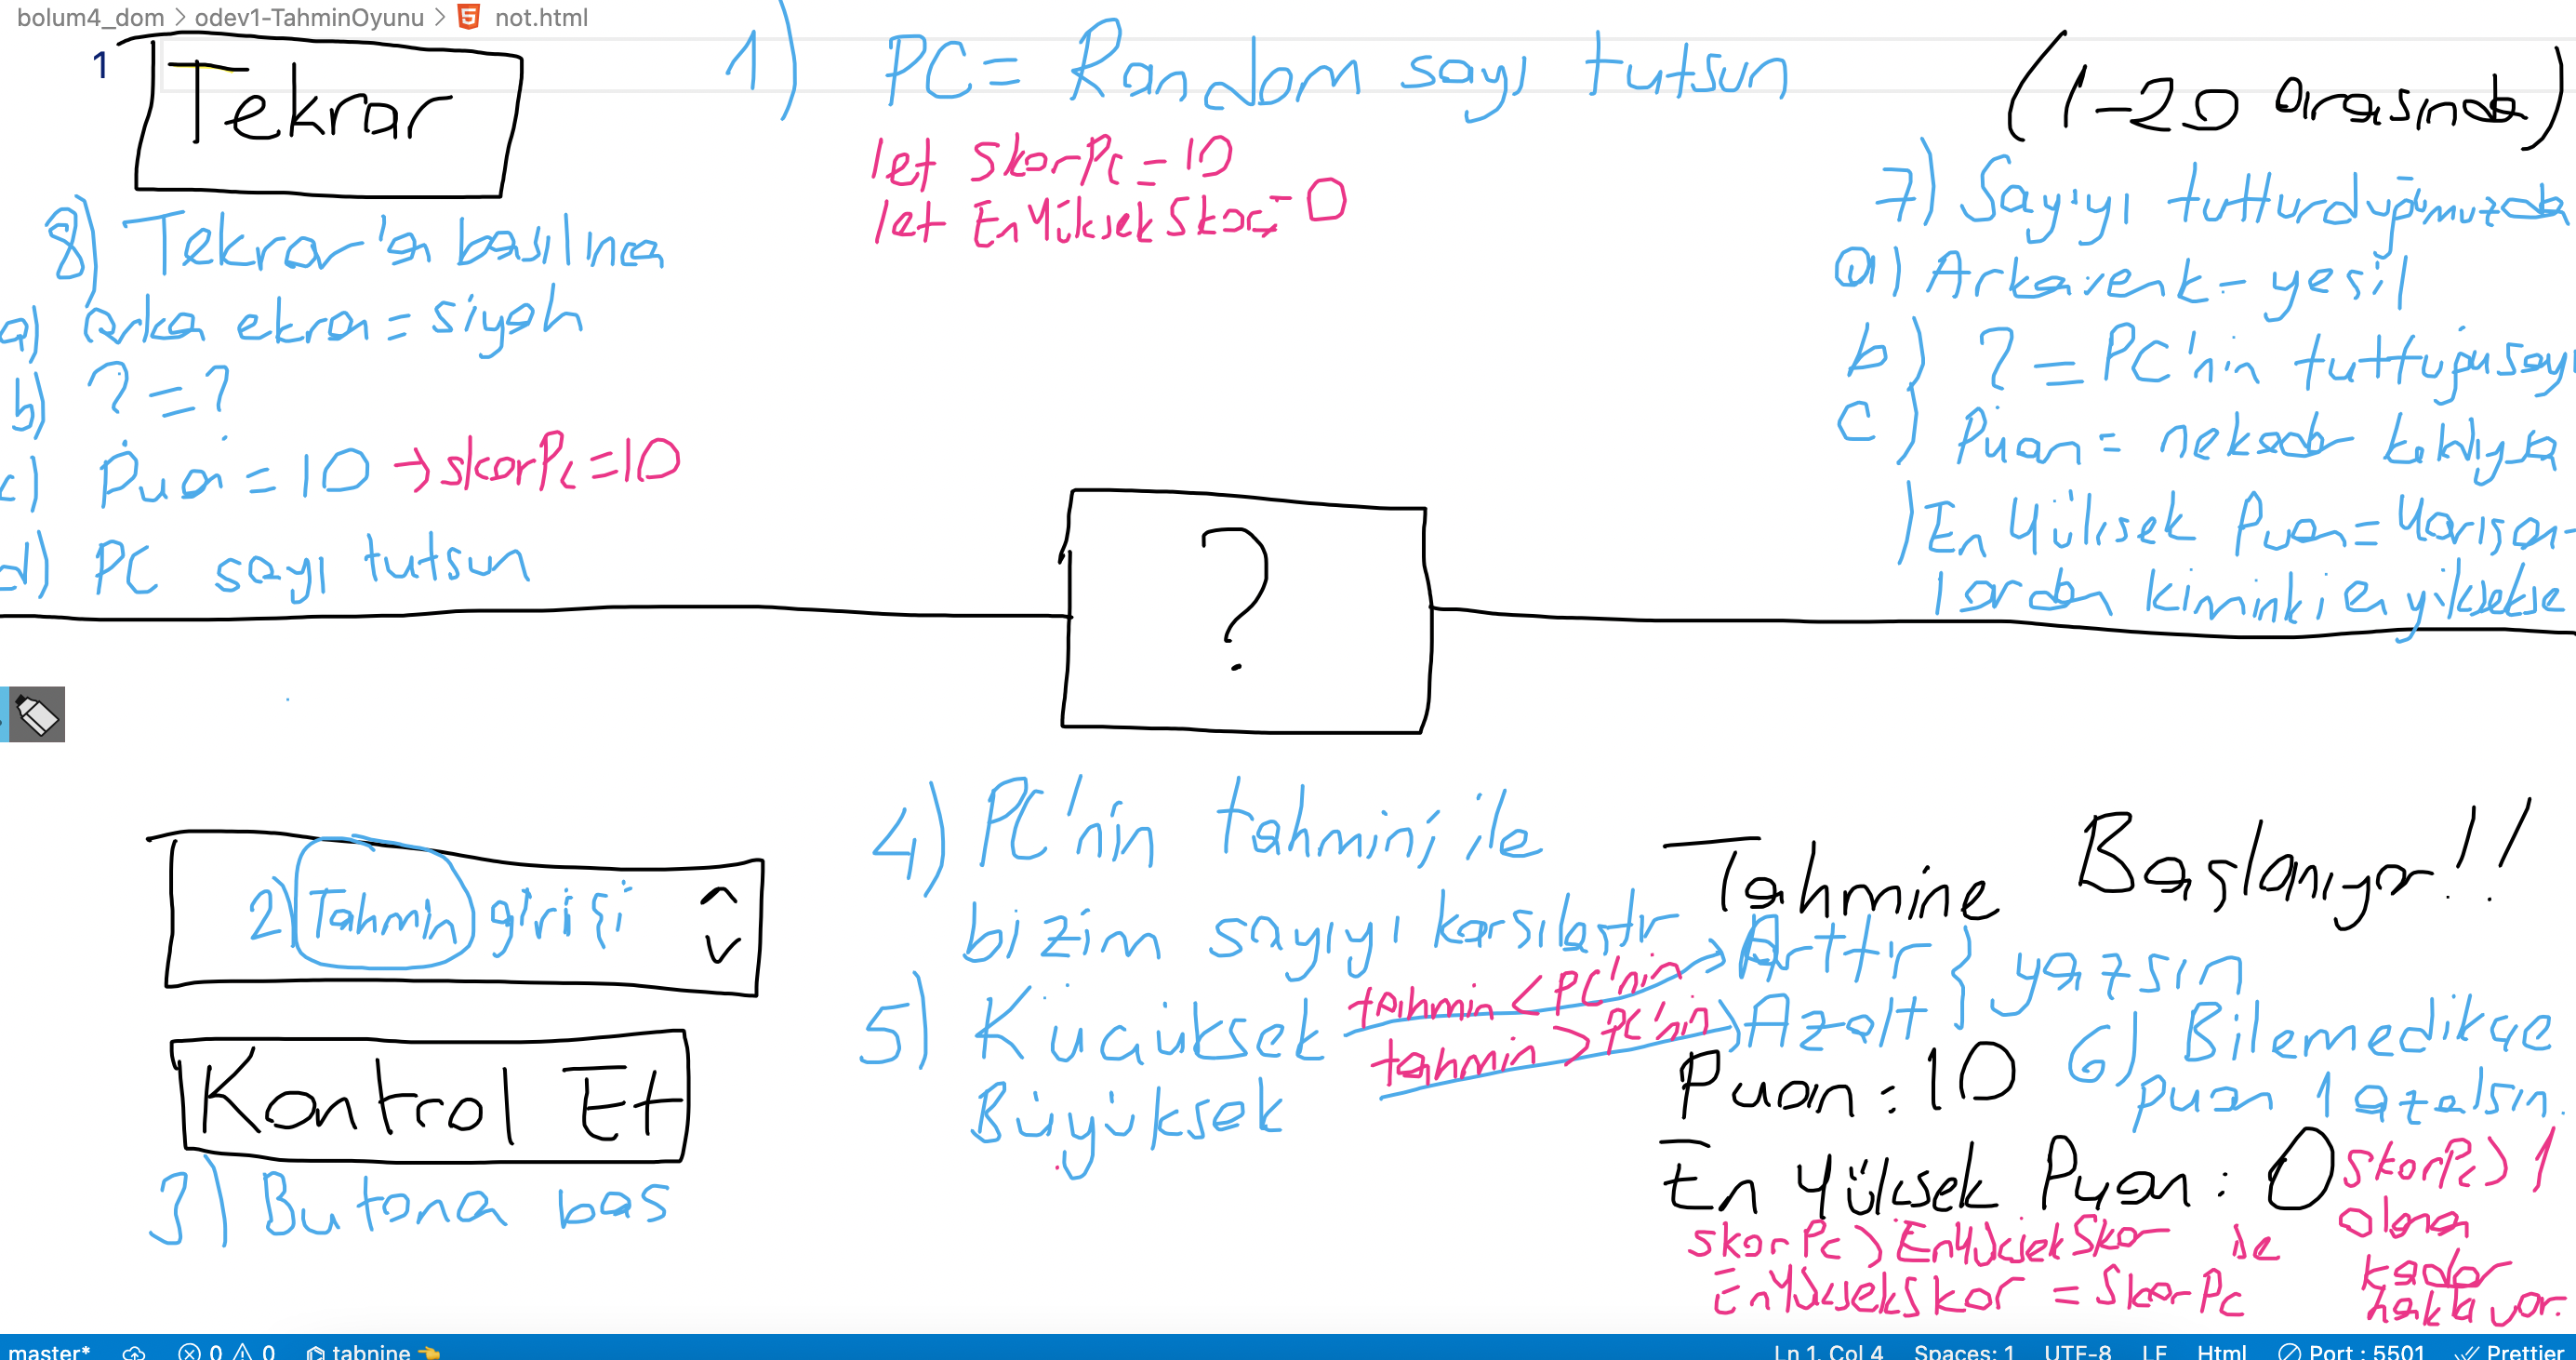 bolum4_dom > odev1-TahminOyunu > not.html
1
Tekrar
1) PC = Random sayı tutsun
(1-20 arasında)
let skorPc = 10
let EnYükseksSkor = 0
8) Tekrar'a basılınca
a) arka ekran = siyah
b) ? = ?
c) Puan = 10 → skorPc = 10
d) PC sayı tutsun
7) Sayıyı tutturduğumuzda
a) Arkarenk = yesil
b) ? = PC'nin tuttuğu sayı
c) Puan = nekadar kaldıysa
) En Yüksek Puan = Yarısan-
lardan kiminki en yüksekse
?
2) Tahmin girişi
Kontrol Et
3) Butona bas
4) PC'nin tahmini ile
bizim sayıyı karsılastır
5) Kücüksek tahmin < PC'nin → Arttır
Büyüksek tahmin > PC'nin → Azalt
} yazsın
Tahmine Başlanıyor!!
Puan: 10
6) Bilemedikçe
puan 1 azalsın.
En Yüksek Puan: 0
skorPc > 1
olana
kadar
hakkı var.
skorPc > EnYüksekSkor ise
EnYüksekSkor = SkorPc
master* 0 0 tabnine 👈 Ln 1, Col 4 Spaces: 1 UTF-8 LF Html Port : 5501 Prettier